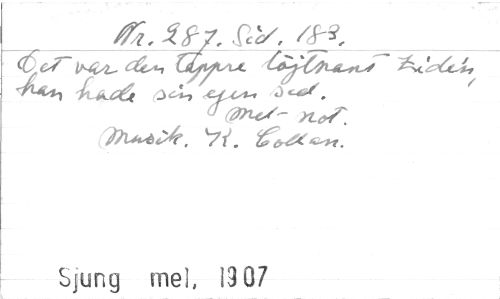 Nr. 287. Sid. 183.
Det var den tappre löjtnant Zidén,
han hade sin egen sed.
Mel-not.
Musik. K. Collan.
Sjung mel, 1907